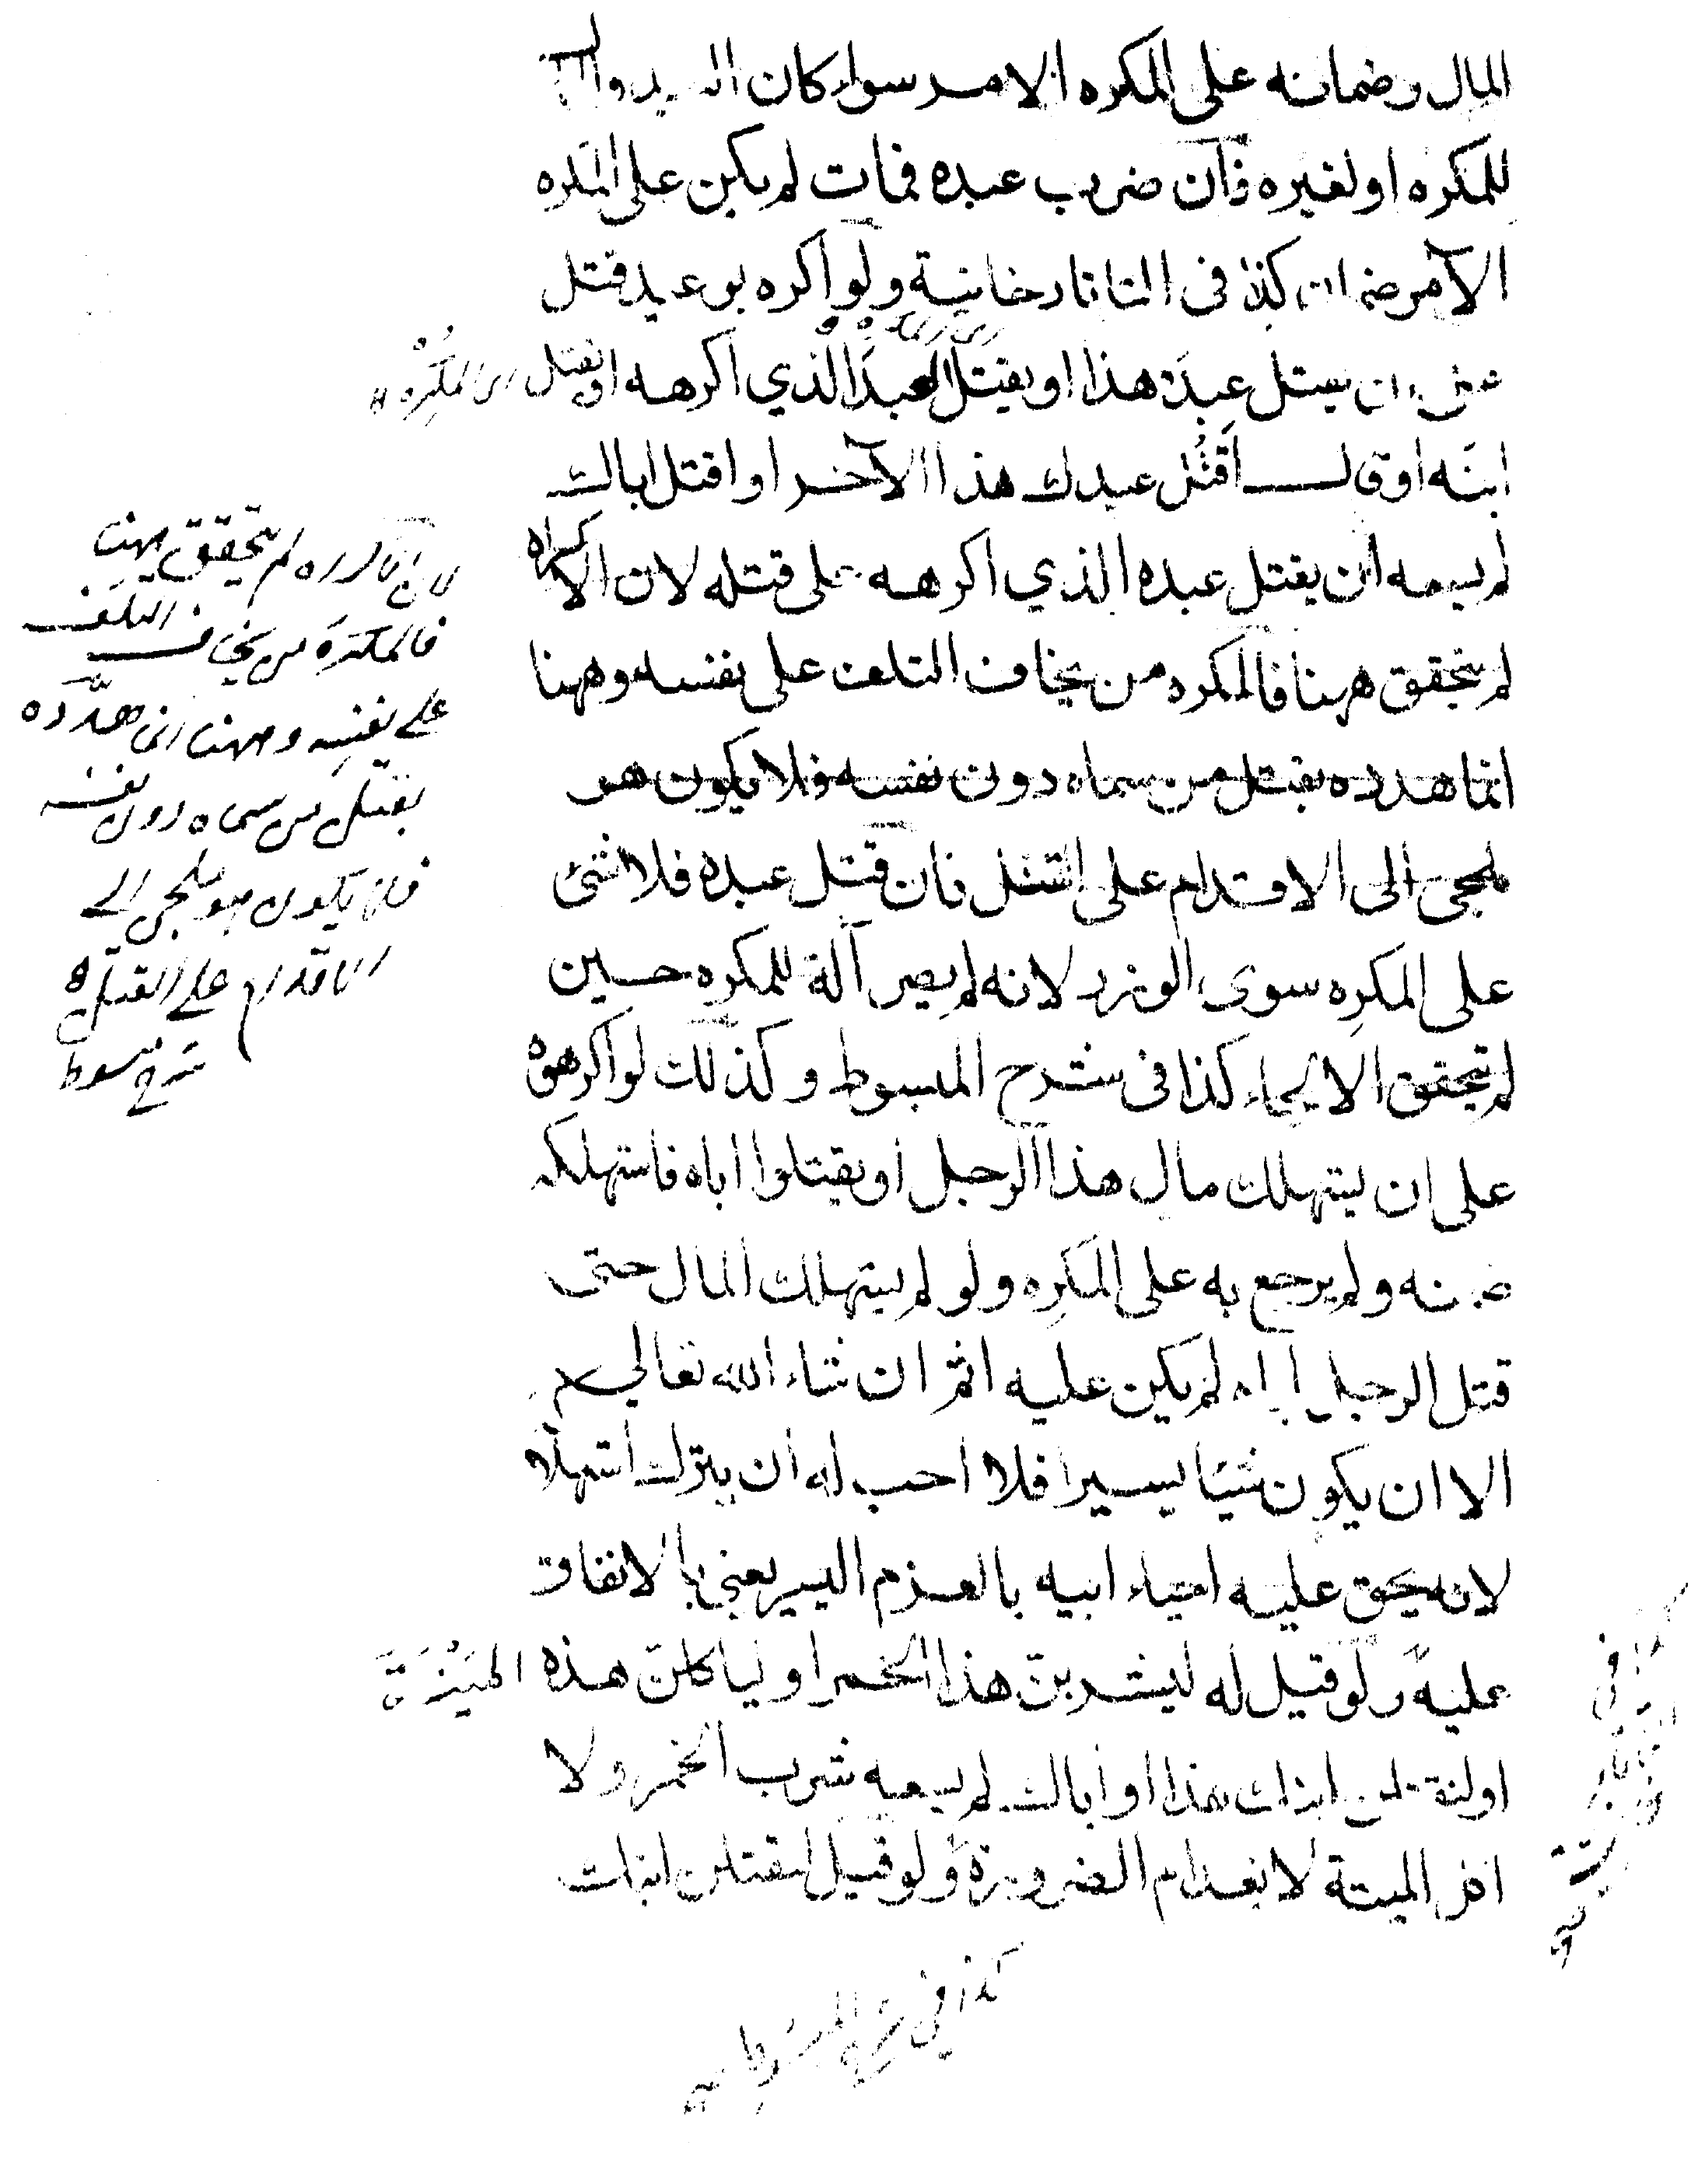 المال وضمانه على المكره الامر سواء كان
للمكره او لغيره فان ضرب عبده فمات لم يكن على المكره
الآمر ضمان كذا فى التاتارخانية ولو اكره بوعيد قتل
على ان يقتل عبده هذا او يقتل العبد الذي اكرهه او يقتل
اى المكره
ابنه او قال اقتل عبدك هذا الآخر او اقتل اباك
لم يسعه ان يقتل عبده الذي اكرهه على قتله لان الاكراه
لم يتحقق ههنا فالمكره من يخاف التلف على نفسه وههنا
انما هدده بقتل من سماه دون نفسه فلا يكون هو
ملجى الى الاقدام على القتل فان قتل عبده فلا شئ
على المكرِه سوى الوزر لانه لم يصر آلة للمكره حين
لم يتحقق الالجاء كذا فى شرح المبسوط وكذلك لو اكرهوه
على ان يستهلك مال هذا الرجل او يقتلوا اباه فاستهلكه
ضمنه ولم يرجع به على المكرِه ولو لم يستهلك المال حتى
قتل الرجل اباه لم يكن عليه اثم ان شاء الله تعالى
الا ان يكون شيئا يسيرا فلا احب له ان يترك استهلاكه
لانه يحق عليه احياء ابيه بالغرم اليسير يعنى بالانفاق
عليه ولو قيل له ليشربن هذا الخمر او لياكلن هذه الميتة
او لنقتلن ابنك هذا او اباك لم يسعه شرب الخمر ولا
اكل الميتة لانعدام الضرورة ولو قيل لنقتلن ابنك
لان الاكراه لم يتحقق ههنا
فالمكره من يخاف التلف
على نفسه وههنا انما هدّده
بقتل من سماه دون نفسه
فلا يكون هو ملجى الى
الاقدام على القتل
شرح مبسوط
كذا فى التاتارخانية
كذا فى شرح المبسوط